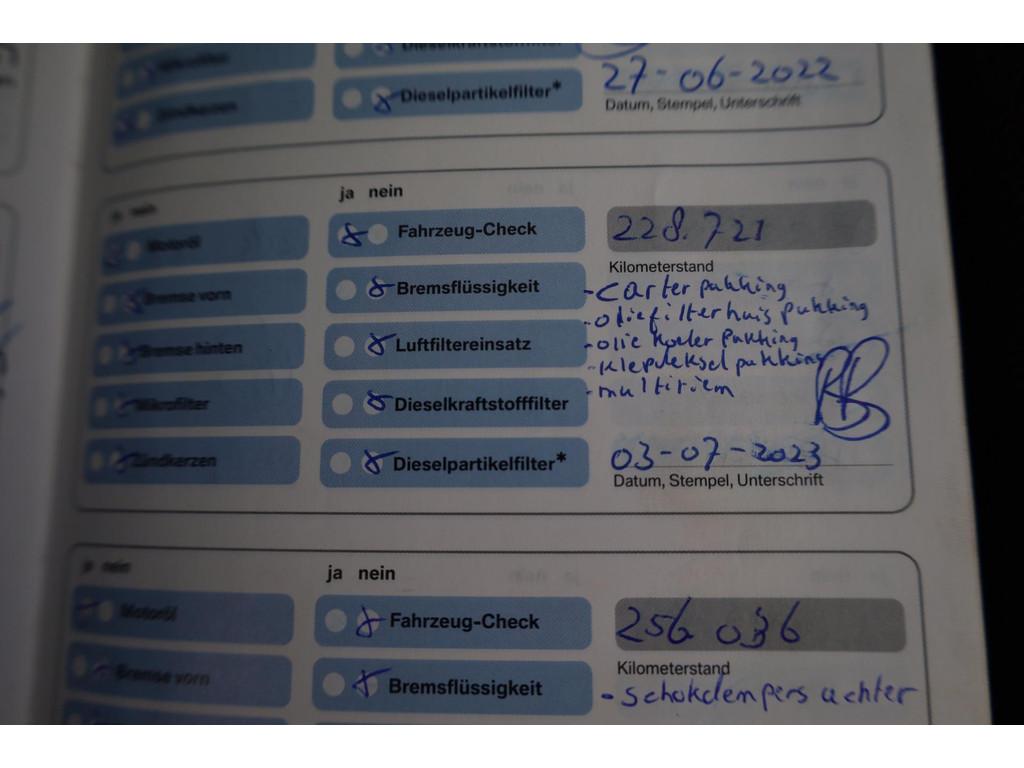 Dieselkraftstofffilter
Dieselpartikelfilter*
27-06-2022
Datum, Stempel, Unterschrift
ja nein
ja nein
Motoröl
Fahrzeug-Check
228.721
Kilometerstand
Bremse vorn
Bremsflüssigkeit
- carter pakking
- oliefilterhuis pakking
Bremse hinten
Luftfiltereinsatz
- olie koeler pakking
- klepdeksel pakking
- multiriem
Mikrofilter
Dieselkraftstofffilter
Zündkerzen
Dieselpartikelfilter*
03-07-2023
Datum, Stempel, Unterschrift
ja nein
ja nein
Motoröl
Fahrzeug-Check
256 036
Kilometerstand
Bremse vorn
Bremsflüssigkeit
- schokdempers achter